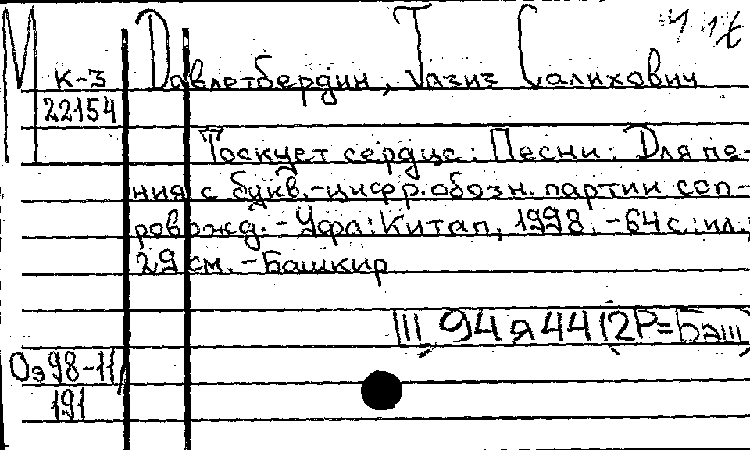 М К-3 Давлетбердин, Газиз Салихович
22154
Тоскует сердце: Песни: Для пе-
ния с букв.-цифр. обозн. партии соп-
ровожд. - Уфа: Китап, 1998. - 64 с.: ил.;
29 см. - Башкир
Щ 94 я 44 (2Р=Баш
Оэ 98-11/
191